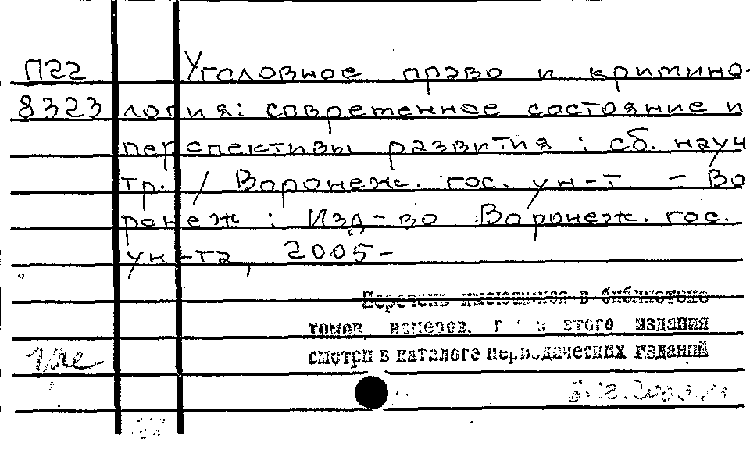 П22 Уголовное право и кримино-
8323 логия: современное состояние и
перспективы развития : сб. науч
тр. / Воронеж. гос. ун-т - Во
ронеж : Изд-во Воронеж. гос.
ун-та, 2005-
Перечень имеющихся в библиотеке
томов номеров, г и этого издания
смотри в каталоге периодических изданий